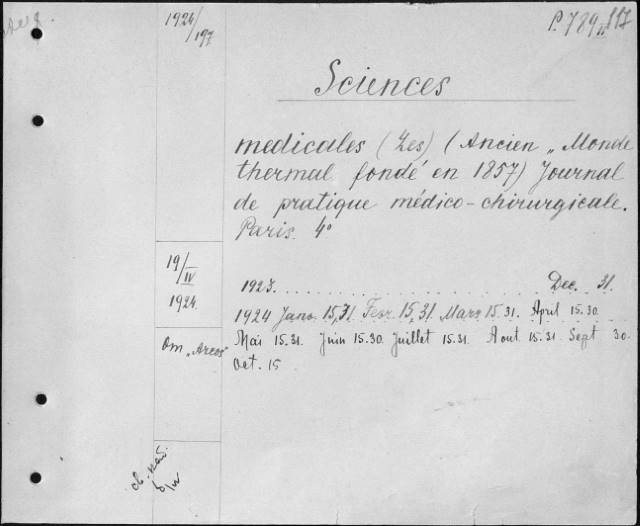 1924/197
P. 789 II 117
Sciences
medicales (Les) (Ancien „Monde
thermal fondé en 1857) Journal
de pratique médico-chirurgicale.
Paris. 4°
19/IV
1924
1923. Dec. 31.
1924 Janv. 15,31. Fevr. 15,31. Mars 15.31. April 15.30.
Mai 15.31. Juin 15.30. Juillet 15.31. Aout. 15.31. Sept 30.
Oct. 15
От „